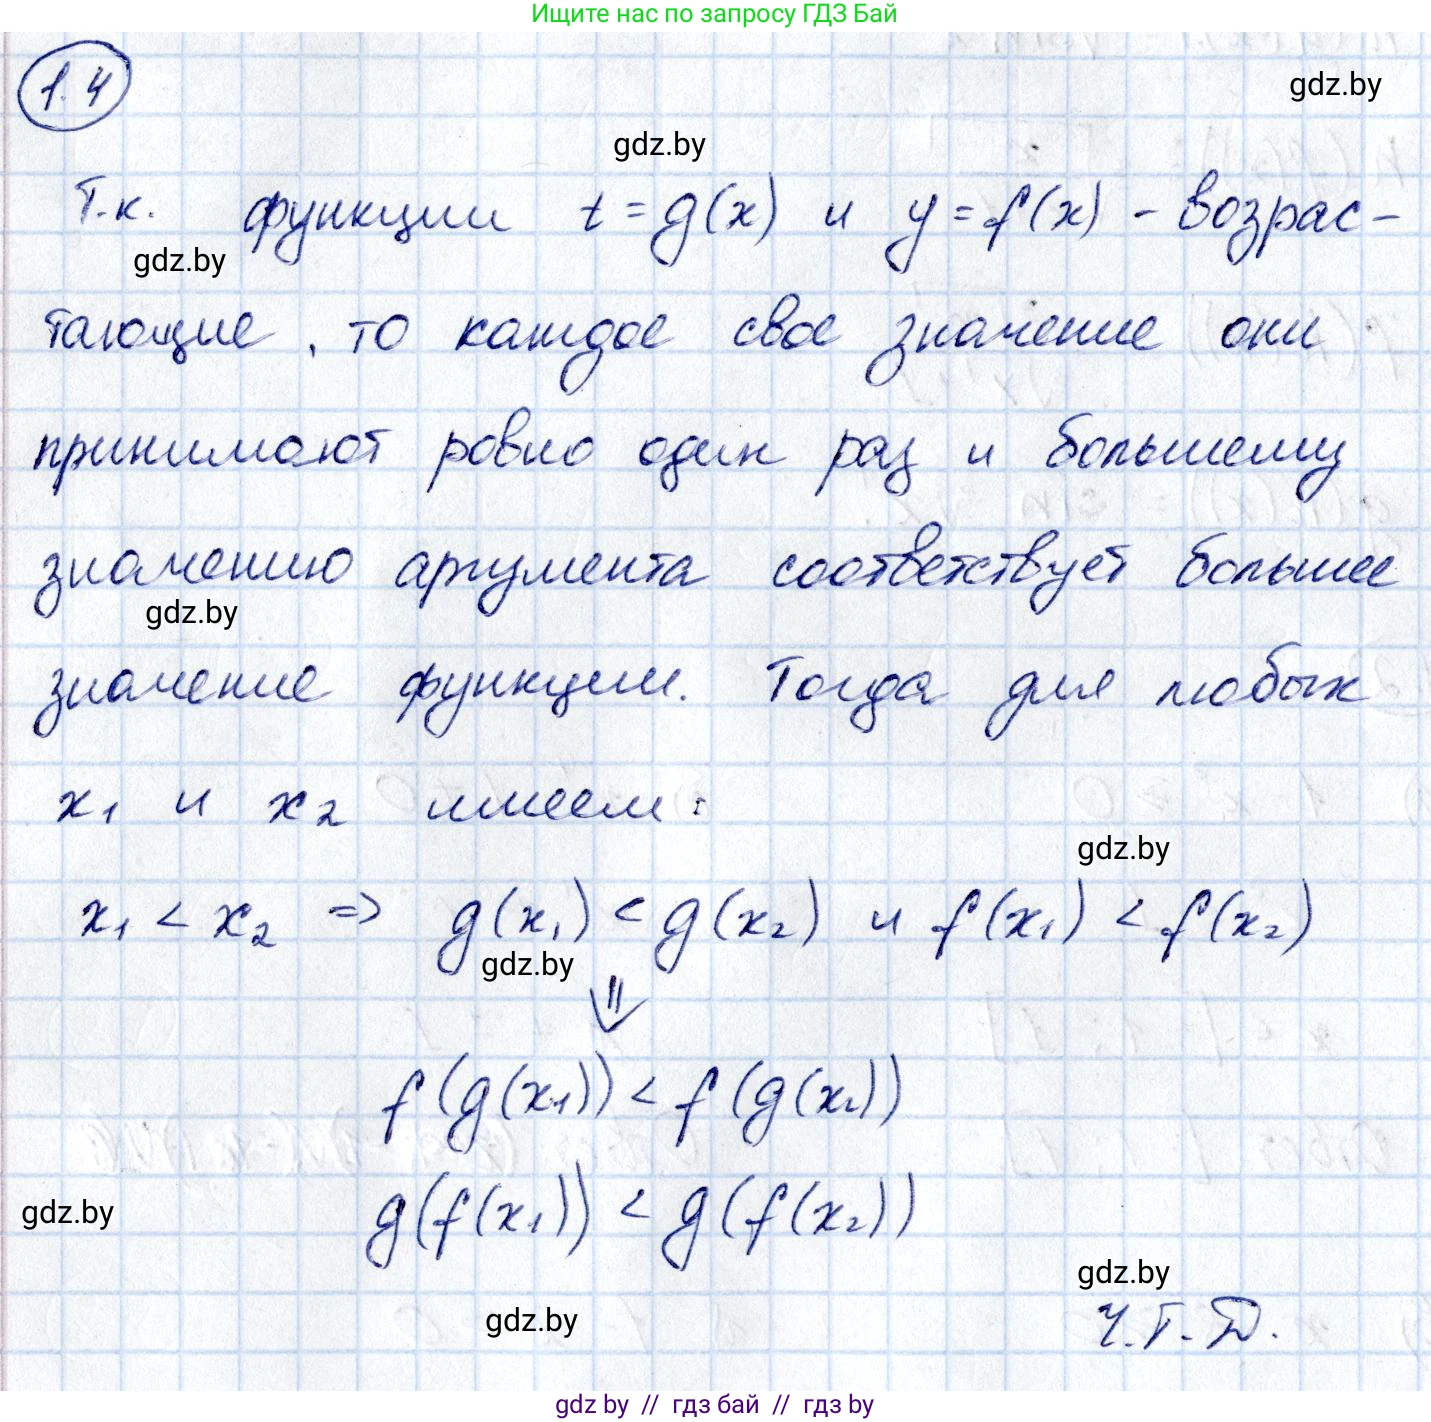 Ищите нас по запросу ГДЗ Бай
1.4
gdz.by
gdz.by
Т.к. функции t = g(x) и y = f(x) - возрас-
gdz.by
тающие, то каждое свое значение они
принимают ровно один раз и большему
значению аргумента соответствует большее
gdz.by
значение функции. Тогда для любых
x₁ и x₂ имеем:
gdz.by
x₁ < x₂ => g(x₁) < g(x₂) и f(x₁) < f(x₂)
gdz.by
⇓
f(g(x₁)) < f(g(x₂))
g(f(x₁)) < g(f(x₂))
gdz.by
gdz.by
gdz.by
Ч.Т.Д.
gdz by // гдз бай // гдз by